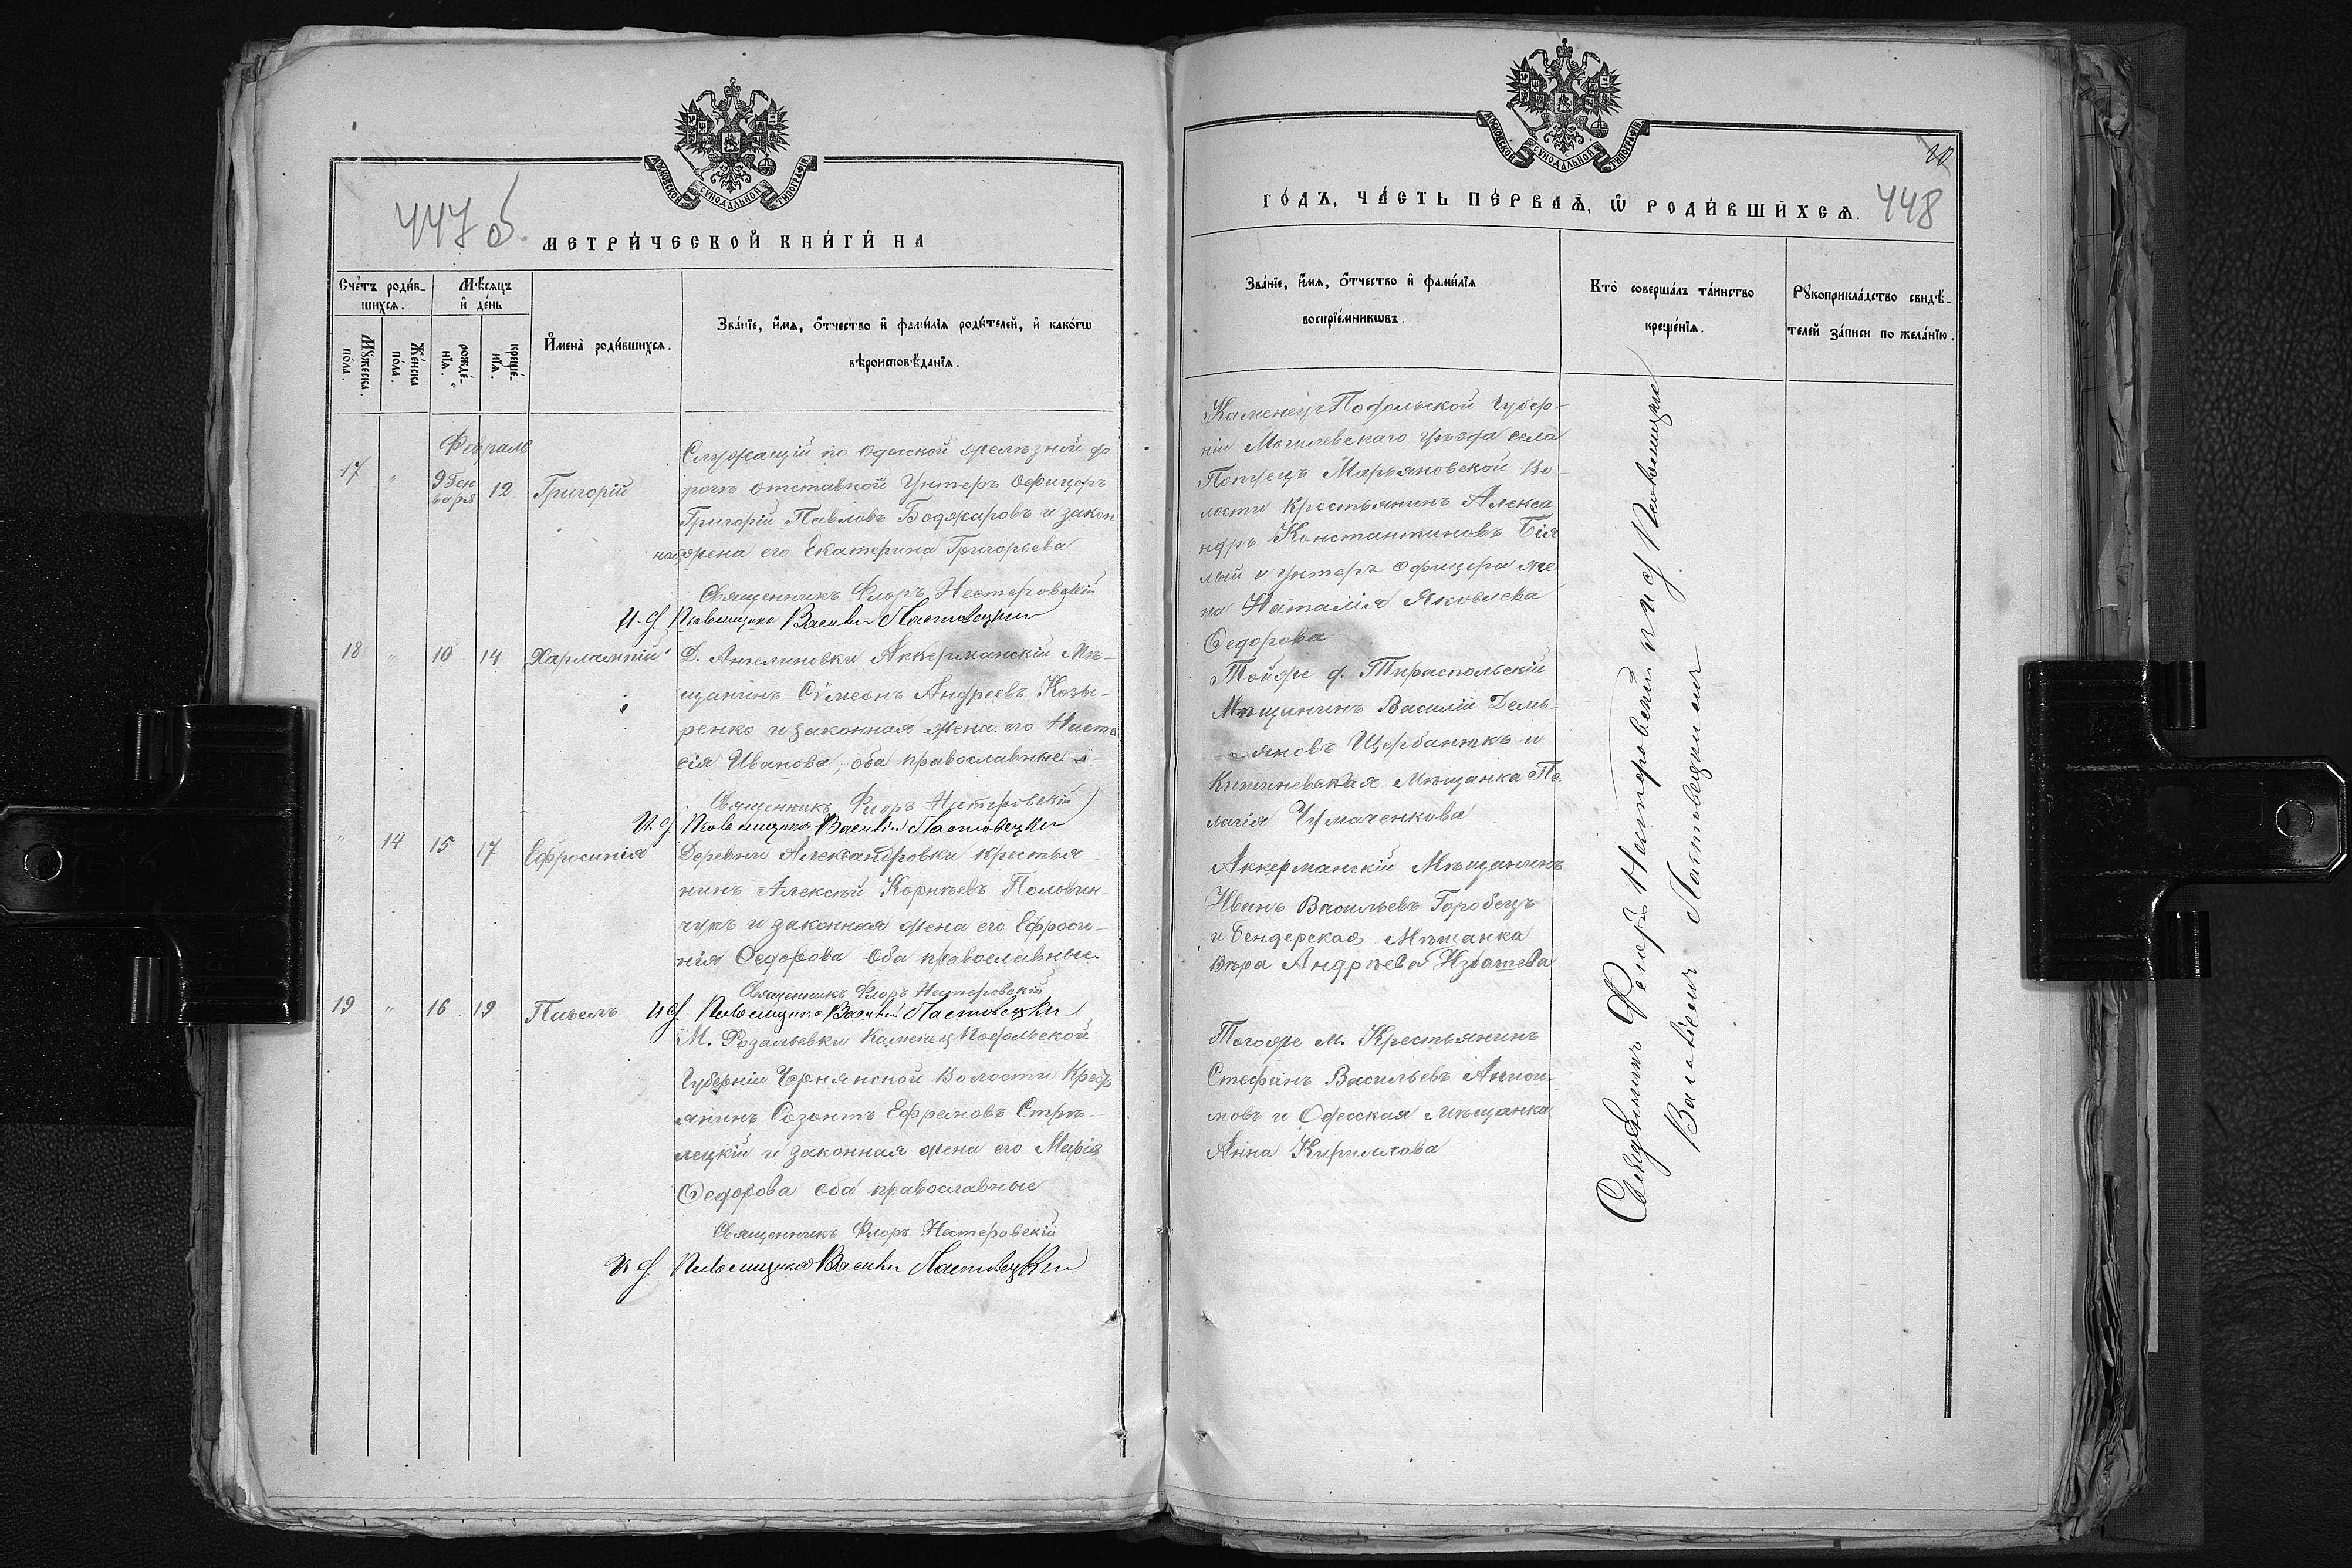 447 об.
МЕТРИ́ЧЕСКОЙ КНИ́ГИ НА
Сче́тъ роди́в-
шихся.
Мѣ́сяцъ
и де́нь
Мꙋ́жеска
по́ла.
Же́нска
по́ла.
рожде́-
нїя.
креще́-
нїя.
Имена̀ роди́вшихся.
Зва́нїе, и́мя, о́тчество и фами́лїя роди́телей, и како́гѡ
вѣроисповѣ́данїя.
Февраль
17 " 9 Ген
варя 12 Григорій
Служащій по Одесской желѣзной до
рогѣ отставной Унтеръ Офицеръ
Григорій Павловъ Боджаровъ и закон
ная жена его Екатерина Григорьева
Священникъ Флоръ Нестеровскій
И. д. Псаломщика Василій Пастовецкій
18 " 10 14 Харлампій
Д. Ангелиновки Аккерманскій Мѣ-
щанинъ Сѵмеонъ Андреевъ Козы-
ренко и законная жена его Наста
сія Иванова, оба православные
Священникъ Флоръ Нестеровскій
И. д. Псаломщика Василій Пастовецкій
" 14 15 17 Ефросинія
Деревни Александровки крестья-
нинъ Алексѣй Корнѣевъ Половин-
чукъ и законная жена его Ефроси-
нія Ѳедорова оба православные.
Священникъ Флоръ Нестеровскій
19 " 16 19 Павелъ
И д. Псаломщика Василій Пастовецкій
М. Розальевки Каменец Подольской
Губерніи Чернянской Волости Крест
янинъ Созонтъ Ефремовъ Стрѣ-
лецкій и законная жена его Марія
Ѳедорова оба православные
Священникъ Флоръ Нестеровскій
И д. Псаломщика Василій Пастовецкій
МОСКОВСКОЙ СѴНОДАЛЬНОЙ ТИПОГРАФІИ
МОСКОВСКОЙ СѴНОДАЛЬНОЙ ТИПОГРАФІИ
ГО́ДЪ, ЧА́СТЬ ПЕ́РВАЯ, Ѡ РОДИ́ВШИХСЯ.
448
Зва́нїе, и́мя, о́тчество и фами́лїя
воспрїе́мникѡвъ.
Кто̀ соверша́лъ та́инство
креще́нїя.
Рꙋкоприкла́дство свидѣ́-
телей за́писи по жела́нїю.
Каменецъ Подольской Губер-
ніи Могилевскаго уѣзда села
Попелецъ Марьяновской Во-
лости Крестьянинъ Алекса
ндръ Константиновъ Бія
лый и унтеръ Офицера же
на Наталія Яковлева
Ѳедорова
Той же д. Тираспольскій
Мѣщанинъ Василій Демь-
яновъ Щербанюкъ и
Кишиневская Мѣщанка Пе
лагія Чумаченкова
Аккерманскій Мѣщанинъ
Иванъ Васильевъ Горобецъ
и Бендерская Мѣщанка
Вѣра Андрѣева Избашева
Того же м. Крестьянинъ
Стефанъ Васильевъ
и Одесская мѣщанка
Анна Кириллова
Священникъ Флоръ Нестеровскій и и д Псаломщика
Василій Пастовецкій